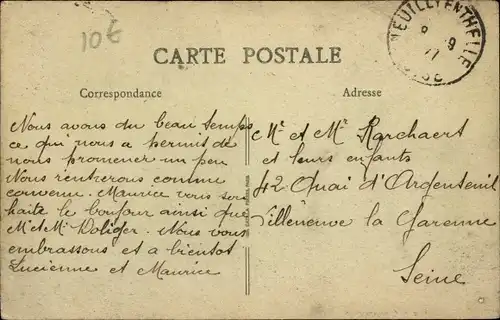 10€
NEUILLY EN THELLE
CARTE POSTALE
Correspondance
Adresse
Nous avons du beau temps
ce qui nous a permit de
nous promener un peu
Nous rentrerons comme
convenu. Maurice vous sou
haite le bonjour ainsi que
Mr et Me Voliger. Nous vous
embrassons et a bientot
Lucienne et Maurice
Mr et Me Karchaert
et leurs enfants
42 Quai d'Argenteuil
Villeneuve la Garenne
Seine